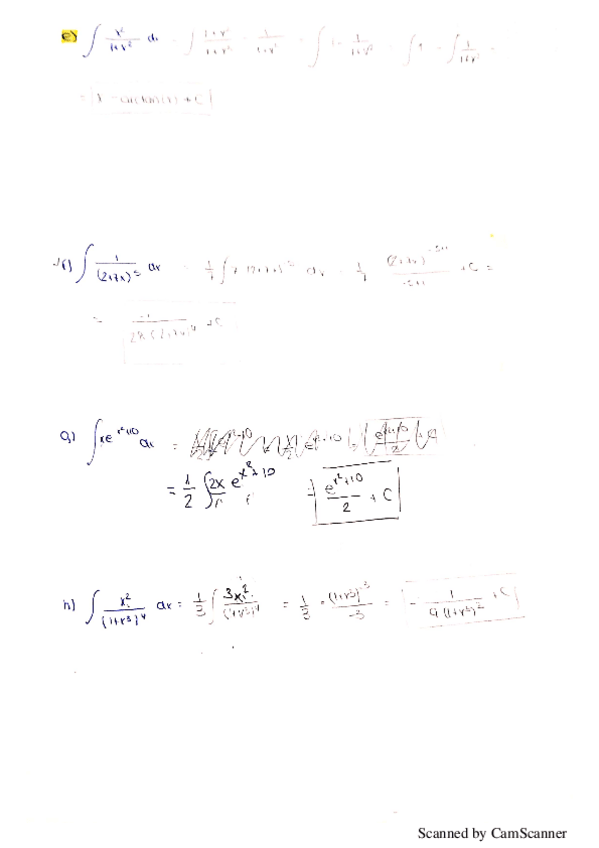 e) ∫ x²/(1+x²) dx = ∫ (1+x²)/(1+x²) - 1/(1+x²) = ∫ 1 - 1/(1+x²) = ∫ 1 - ∫ 1/(1+x²) =
= x - arctan(x) + C
f) ∫ 1/(2+7x)⁵ dx = 1/7 ∫ 7 (2+7x)⁻⁵ dx = 1/7 (2+7x)⁻⁵⁺¹/(-5+1) + C =
= -1/(28(2+7x)⁴) + C
g) ∫ xe^(x²+10) dx =
= 1/2 ∫ 2x e^(x²+10) = e^(x²+10)/2 + C
h) ∫ x²/(1+x³)⁴ dx = 1/3 ∫ 3x²/(1+x³)⁴ = 1/3 · (1+x³)⁻³/-3 = - 1/(9(1+x³)²) + C
Scanned by CamScanner